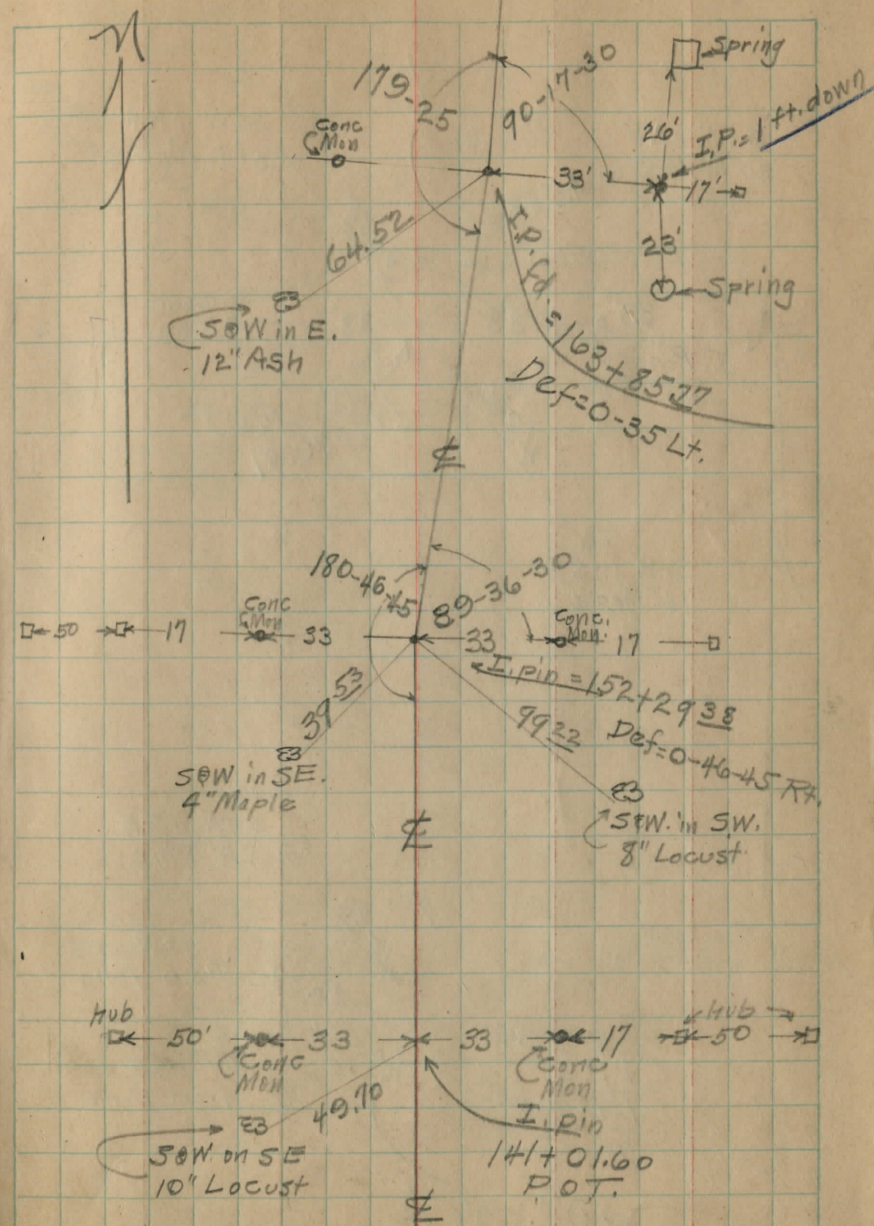 N
179-25
90-17-30
Spring
26'
I.P.=1 ft. down
Conc
Mon
33'
17'
64.52
23'
Spring
I.P. fd. = 163+8527
Def=0-35 Lt.
S&W in E.
12" Ash
℄
180-46-45
89-36-30
50
17
Conc
Mon
33
33
Conc.
Mon.
17
I. pin = 152+2938
Def=0-46-45 Rt.
3953
9922
S&W in SE.
4" Maple
S&W. in S.W.
8" Locust
℄
Hub
Hub
50'
33
33
17
50
Conc
Mon
Conc
Mon
49.70
I. pin
141+01.60
P.O.T.
S&W on SE
10" Locust
℄